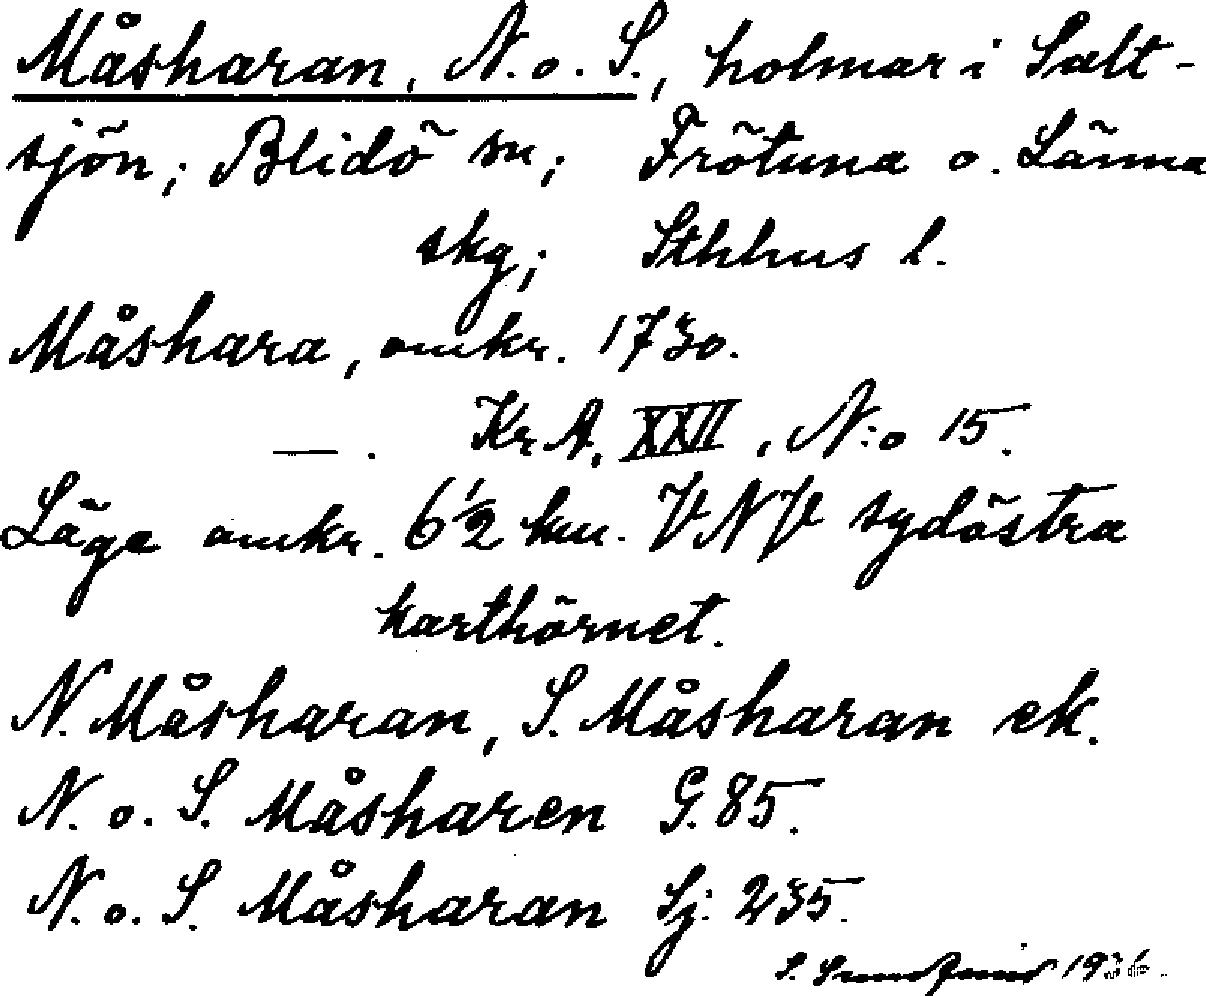 Måsharan, N. o. S., holmar i Salt-
sjön; Blidö sn; Frötuna o. Länna
skg; Sthlms l.
Måshara, omkr. 1730.
— . Kr A, XXII, N:o 15.
Läge omkr. 6½ km. VNV sydöstra
karthörnet.
N. Måsharan, S. Måsharan ek.
N. o. S. Måsharen G. 85.
N. o. S. Måsharan Sj: 235.
S. 1936.